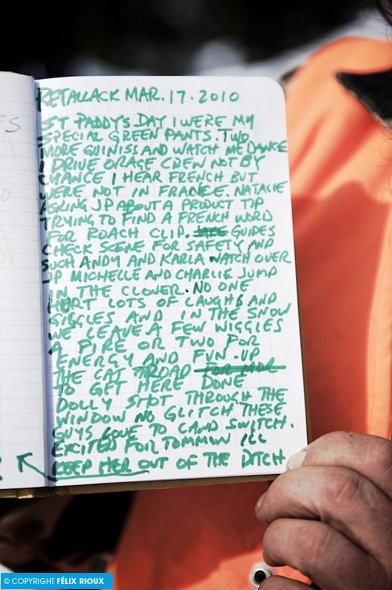 RETALLACK MAR. 17. 2010
ST PADDYS DAY I WERE MY
SPECIAL GREEN PANTS. TWO
MORE GUINISS AND WATCH ME DANCE
I DRIVE ORAGE CREW NOT BY
CHANCE I HEAR FRENCH BUT
WERE NOT IN FRANCE. NATALIE
GOING UP ABOUT A PRODUCT TIP
TRYING TO FIND A FRENCH WORD
FOR ROACH CLIP. GUIDES
CHECK SCENE FOR SAFETY AND
SUCH ANDY AND KARLA WATCH OVER
UP MICHELLE AND CHARLIE JUMP
IN THE CLOVER. NO ONE
HURT LOTS OF LAUGHS AND
GIGGLES AND IN THE SNOW
WE LEAVE A FEW WIGGLES
A PIRE OR TWO FOR
ENERGY AND FUN. UP
THE CAT ROAD FOR MOR
TO GET HERE DONE
DOLLY SHOT THROUGH THE
WINDOW NO GLITCH THESE
GUYS LOVE TO LAND SWITCH.
EXCITED FOR TOMMOW ILL
KEEP HER OUT OF THE DITCH
© COPYRIGHT FÉLIX RIOUX